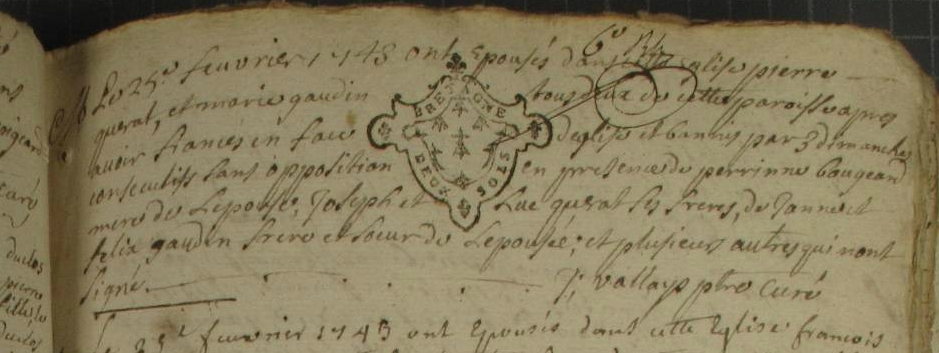 6e Rle
Le 25e feuvrier 1743 ont Epousés dans cette Eglise pierre
querat, et marie gaudin tous deux de cette paroisse apres
avoir fiancés en face deglise et bannis par 3 dimanches
consecutifs sans opposition en presence de perrinne baugeard
mere de Lepouse, Joseph et Luc querat ses freres, de Janne et
felix gaudin frere et soeur de Lepousée; et plusieurs autres qui nont
signé.
J; vallays ptre Curé
25e feuvrier 1743 ont Epousés dans cette Eglise francois
BRETAGNE
DEUX SOLS
duclos
pierre
fille
duclos